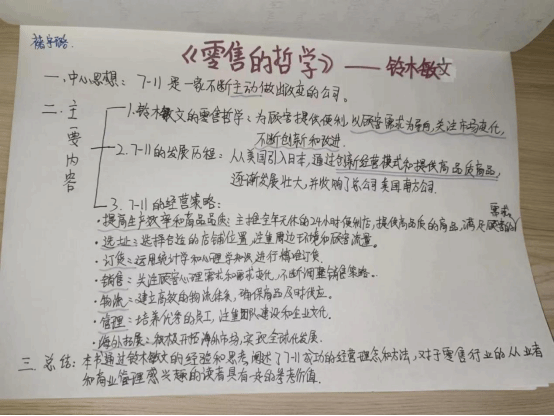 《零售的哲学》——铃木敏文
一、中心思想：7-11是一家不断主动做出改变的公司。
二、主要内容
1.铃木敏文的零售哲学：为顾客提供便利，以顾客需求为导向，关注市场变化，
不断创新和改进.
2.7-11的发展历程：从美国引入日本，通过创新经营模式和提供高品质商品，
逐渐发展壮大，并收购了总公司美国南方公司.
3.7-11的经营策略：
·提高生产效率和商品品质：主推全年无休的24小时便利店，提供高品质的商品，满足顾客的需求
·选址：选择合适的店铺位置，注重周边环境和顾客流量。
·订货：运用统计学和心理学知识进行精准订货.
·销售：关注顾客心理需求和需求变化，不断调整销售策略。
·物流：建立高效的物流体系，确保商品及时供应。
·管理：培养优秀的员工，注重团队建设和企业文化。
·海外拓展：积极开拓海外市场，实现全球化发展.
三、总结：本书通过铃木敏文的经验和思考，阐述了7-11成功的经营理念和方法，对于零售行业的从业者
和商业管理感兴趣的读者具有一定的参考价值.